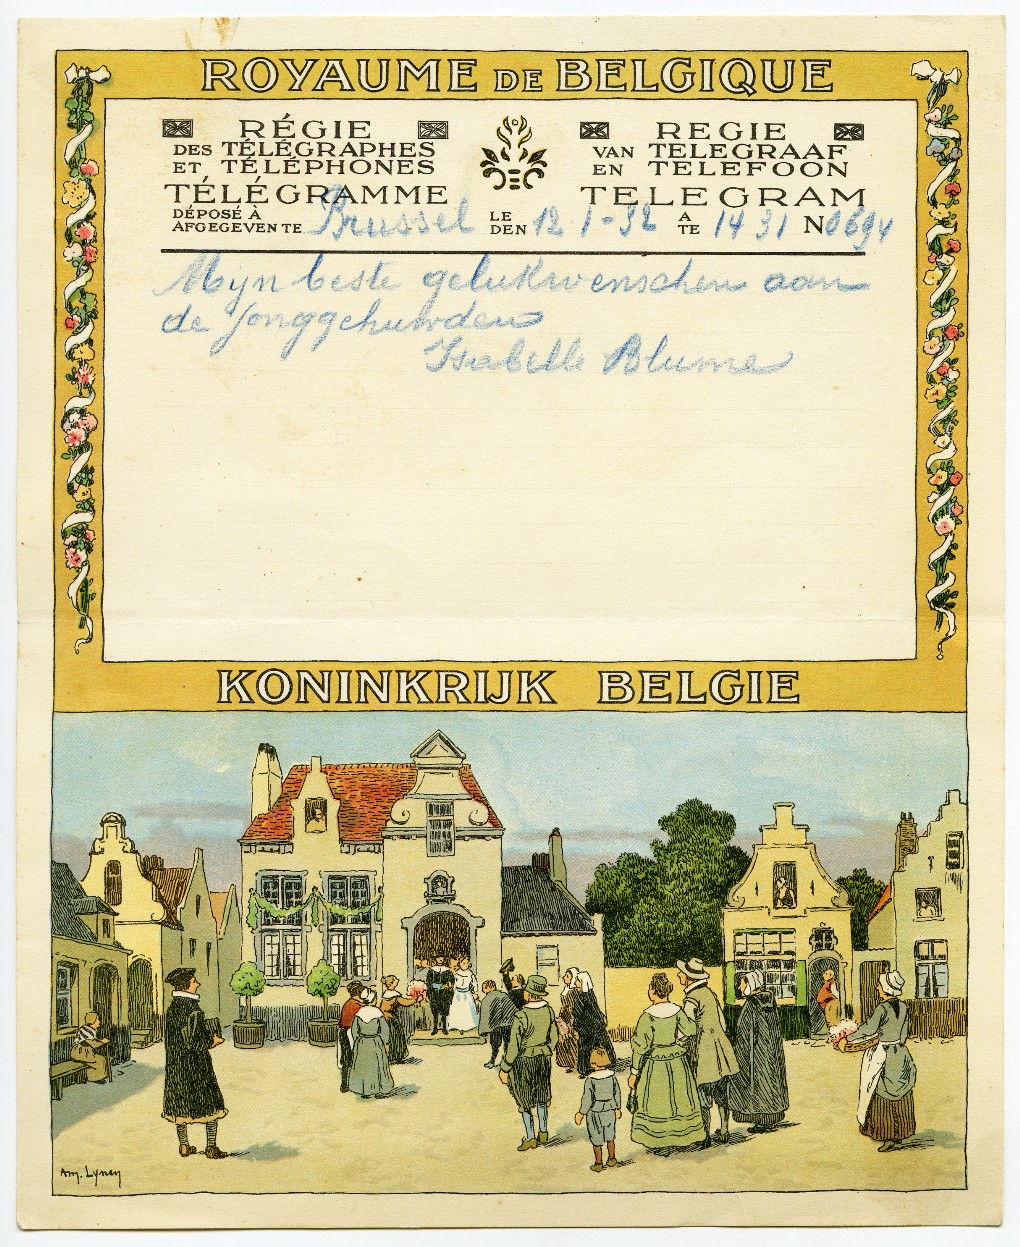 ROYAUME DE BELGIQUE
RÉGIE
DES TÉLÉGRAPHES
ET TÉLÉPHONES
TÉLÉGRAMME
REGIE
VAN TELEGRAAF
EN TELEFOON
TELEGRAM
DÉPOSÉ À
AFGEGEVEN TE Brussel LE
DEN 12 1-32 A
TE 14 31 N 0694
Mijn beste gelukwenschen aan
de Jonggehuwden
Isabelle Blume
KONINKRIJK BELGIE
Am. Lynen